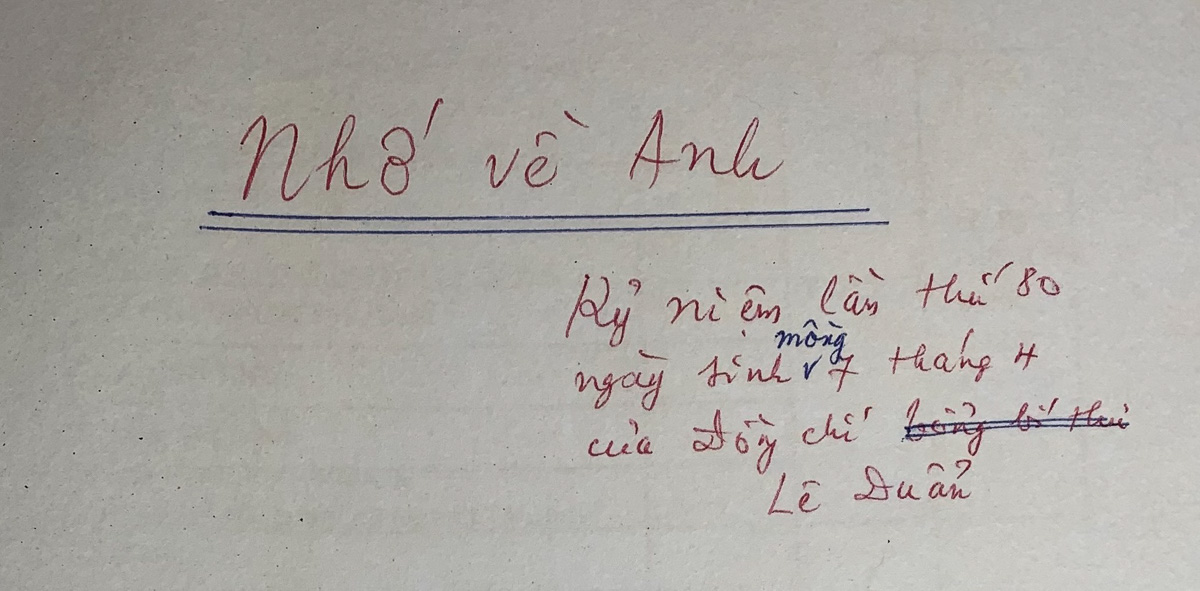 Nhớ về Anh
Kỷ niệm lần thứ 80
ngày sinh mồng 7 tháng 4
của đồng chí tổng bí thư
Lê Duẩn